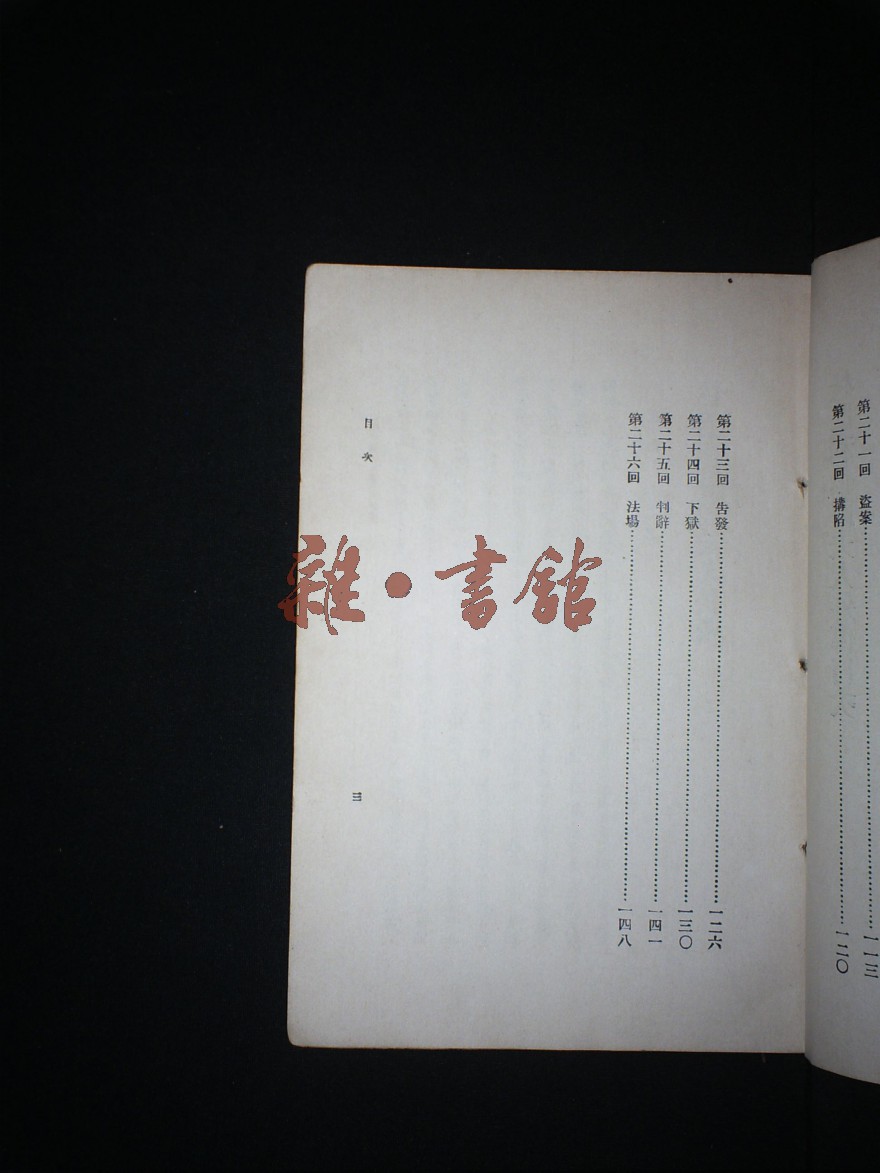 第二十一回　盜案……一一三
第二十二回　搆陷……一二〇
第二十三回　告發……一二六
第二十四回　下獄……一三〇
第二十五回　判辭……一四一
第二十六回　法場……一四八
目次
三
雜·書館